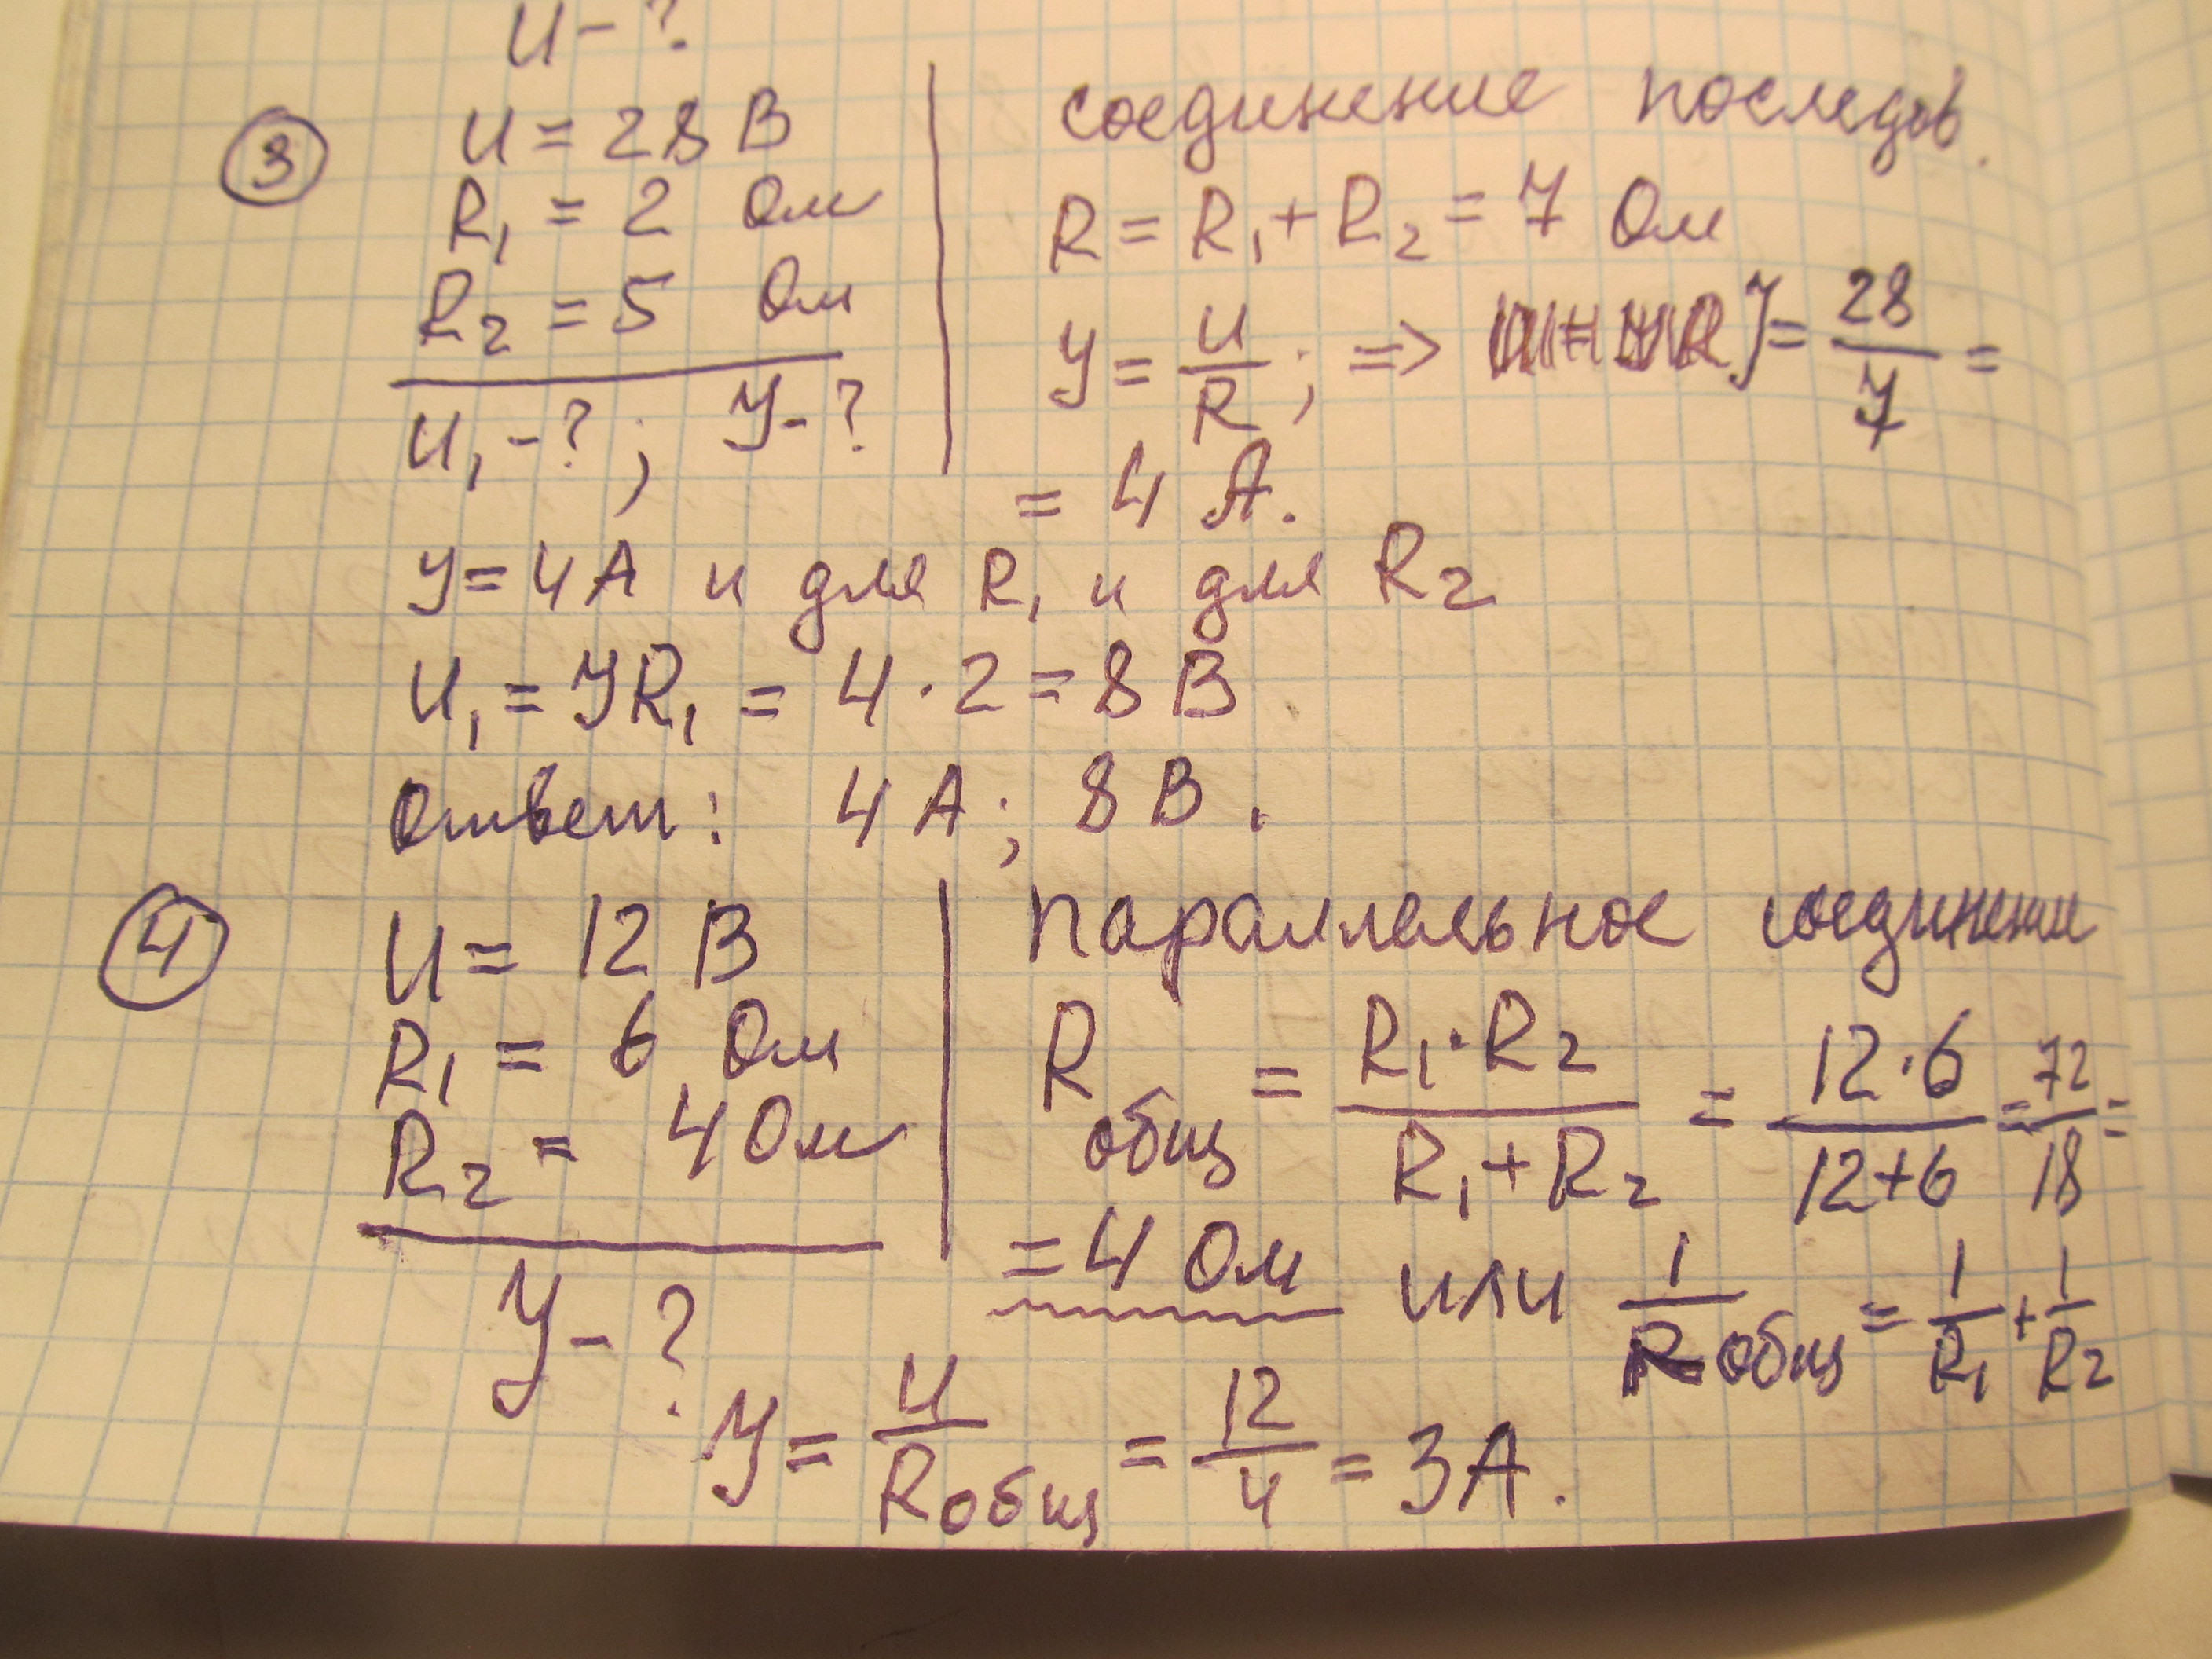 U - ?
③ U = 28 В
R₁ = 2 Ом
R₂ = 5 Ом
U₁ - ? ; У - ?
соединение последов.
R = R₁ + R₂ = 7 Ом
У = U/R ; => У = 28/7 =
= 4 А.
У = 4 А и для R₁ и для R₂
U₁ = УR₁ = 4 · 2 = 8 В
Ответ: 4 А ; 8 В .
④ U = 12 В
R₁ = 6 Ом
R₂ = 4 Ом
У - ?
параллельное соединение
R общ = R₁·R₂/R₁+R₂ = 12·6/12+6 = 72/18 =
= 4 Ом или 1/R общ = 1/R₁ + 1/R₂
У = U/R общ = 12/4 = 3 А.